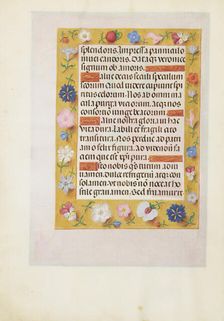 splendoris. Impressa pannicu lo
nivei candoris. Dataq3 veronice
signum ob amoris.
Salve decus seculi speculum
sanctorum Quod videre cupiunt spi
ritus celorum. Nos ab omni ma
cula purga viciorum. Atq3 nos
consortio iunge beatorum.
Salve nostra gloria in hac
vita dura. Labili et fragili cito
transitura. Nos perduc ad patri
am o felix figura. Ad videndum fa
ciem que est xpi pura.
Esto nobis quesumus tutum ad
iuvamen. Dulce refrigerium atq3 con
solamen. Ut nobis non noceat ho
stile gravamen. Sed fruamur